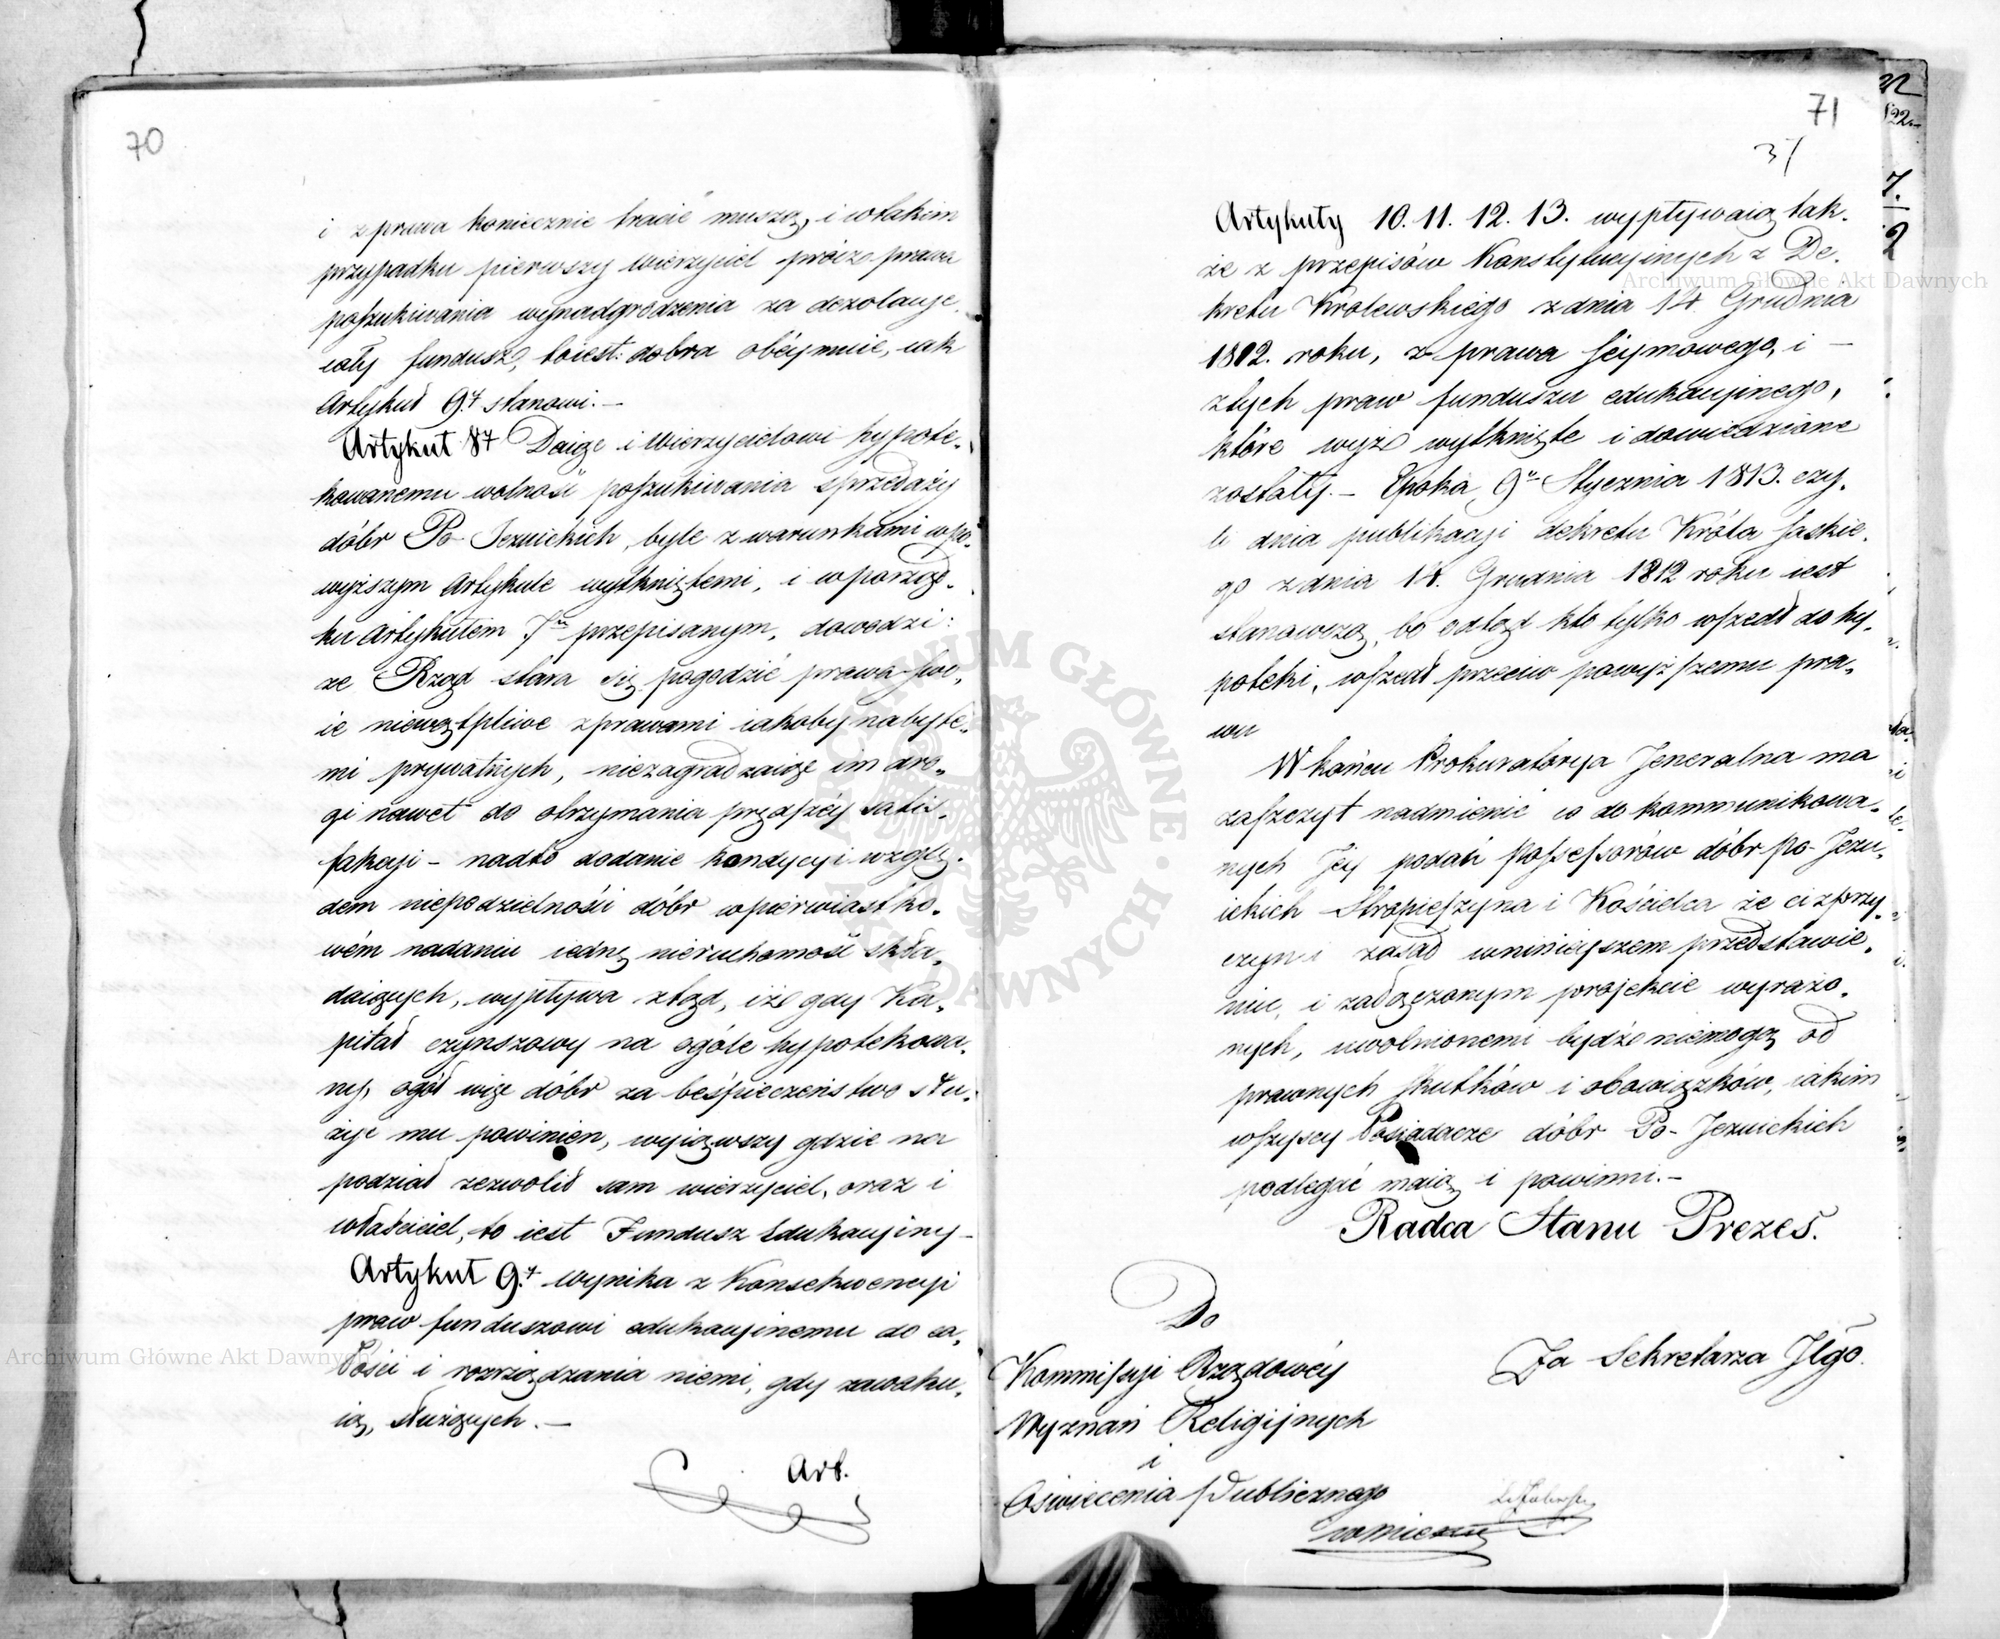 70
i z prawa koniecznie tracić muszą, i w takim
przypadku pierwszy wierzyciel prócz prawa
poszukiwania wynadgrodzenia za dezolacye,
cały fundusz, toiest: dobra obéymuie, iak
Artykuł 9.ty stanowi.—
Artykuł 8y Daiąc i Wierzycielowi hypote-
kowanemu wolność poszukiwania sprzedaży
dóbr Po-Jezuickich, byle z warunkami w po-
wyższym Artykule wytkniętemi, i w porząd-
ku Artykułem 7m przepisanym, dowodzi:
że Rząd stara się pogodzić prawa swo-
ie niewątpliwe z prawami iakoby nabyte-
mi prywatnych, niezagradzaiąc im dro-
gi nawet do otrzymania prędszéy satis-
fakcyi – nadto dodanie kondycyi wzglę-
dem niepodzielności dóbr w pierwiastko-
wém nadaniu iedną nieruchomość skła-
daiących, wypływa ztąd, iż gdy Ka-
pitał czynszowy na ogóle hypotekowa-
ny, ogół więc dóbr za beśpieczeństwo słu-
żyć mu powinien, wyiąwszy gdzie na
podział zezwolił sam wierzyciel, oraz i
właściciel, to iest Fundusz Edukacyiny—
Artykuł 9.y wynika z Konsekwencyi
praw funduszowi edukacyinemu do ca-
łości i rozrządzania niemi, gdy zawaku-
ią, służących.—
Art.
71
37
Artykuły 10. 11. 12. 13. wypływaią tak-
że z przepisów Konstytucyinych z De-
kretu Królewskiego z dnia 14 Grudnia
1812. roku, z prawa Seymowego, i —
z tych praw funduszu edukacyinego,
które wyżé wytknięte i dowiedzione
zostały.— Epoka 9o Stycznia 1813. czy-
li dnia publikacyi dekretu Króla Saskie-
go z dnia 14. Grudnia 1812 roku iest
stanowczą, bo odtąd kto tylko wszedł do hy-
poteki, wszedł przeciw powyższemu pra-
wu
W końcu Prokuratorya Jeneralna ma
zaszczyt nadmienić co do kommunikowa-
nych Jey podań Possessorów dóbr po-Jezu-
ickich Skrapieszyna i Kościelca że ci z przy-
czyn i zasad w niniejszem przedstawie-
niu, i załączonym projekcie wyrażo-
nych, uwolnionemi bydź niemogą od
prawnych skutków i obowiązków, iakim
wszyscy Posiadacze dóbr Po-Jezuickich
podlegać maią i powinni.—
Radca Stanu Prezes.
Do
Kommissyi Rządowéy
Wyznań Religijnych
i
Oświecenia Publicznego
w mieście
Za Sekretarza Jlgo.
Archiwum Główne Akt Dawnych
Archiwum Główne Akt Dawnych
ARCHIWUM GŁÓWNE · AKT DAWNYCH ·